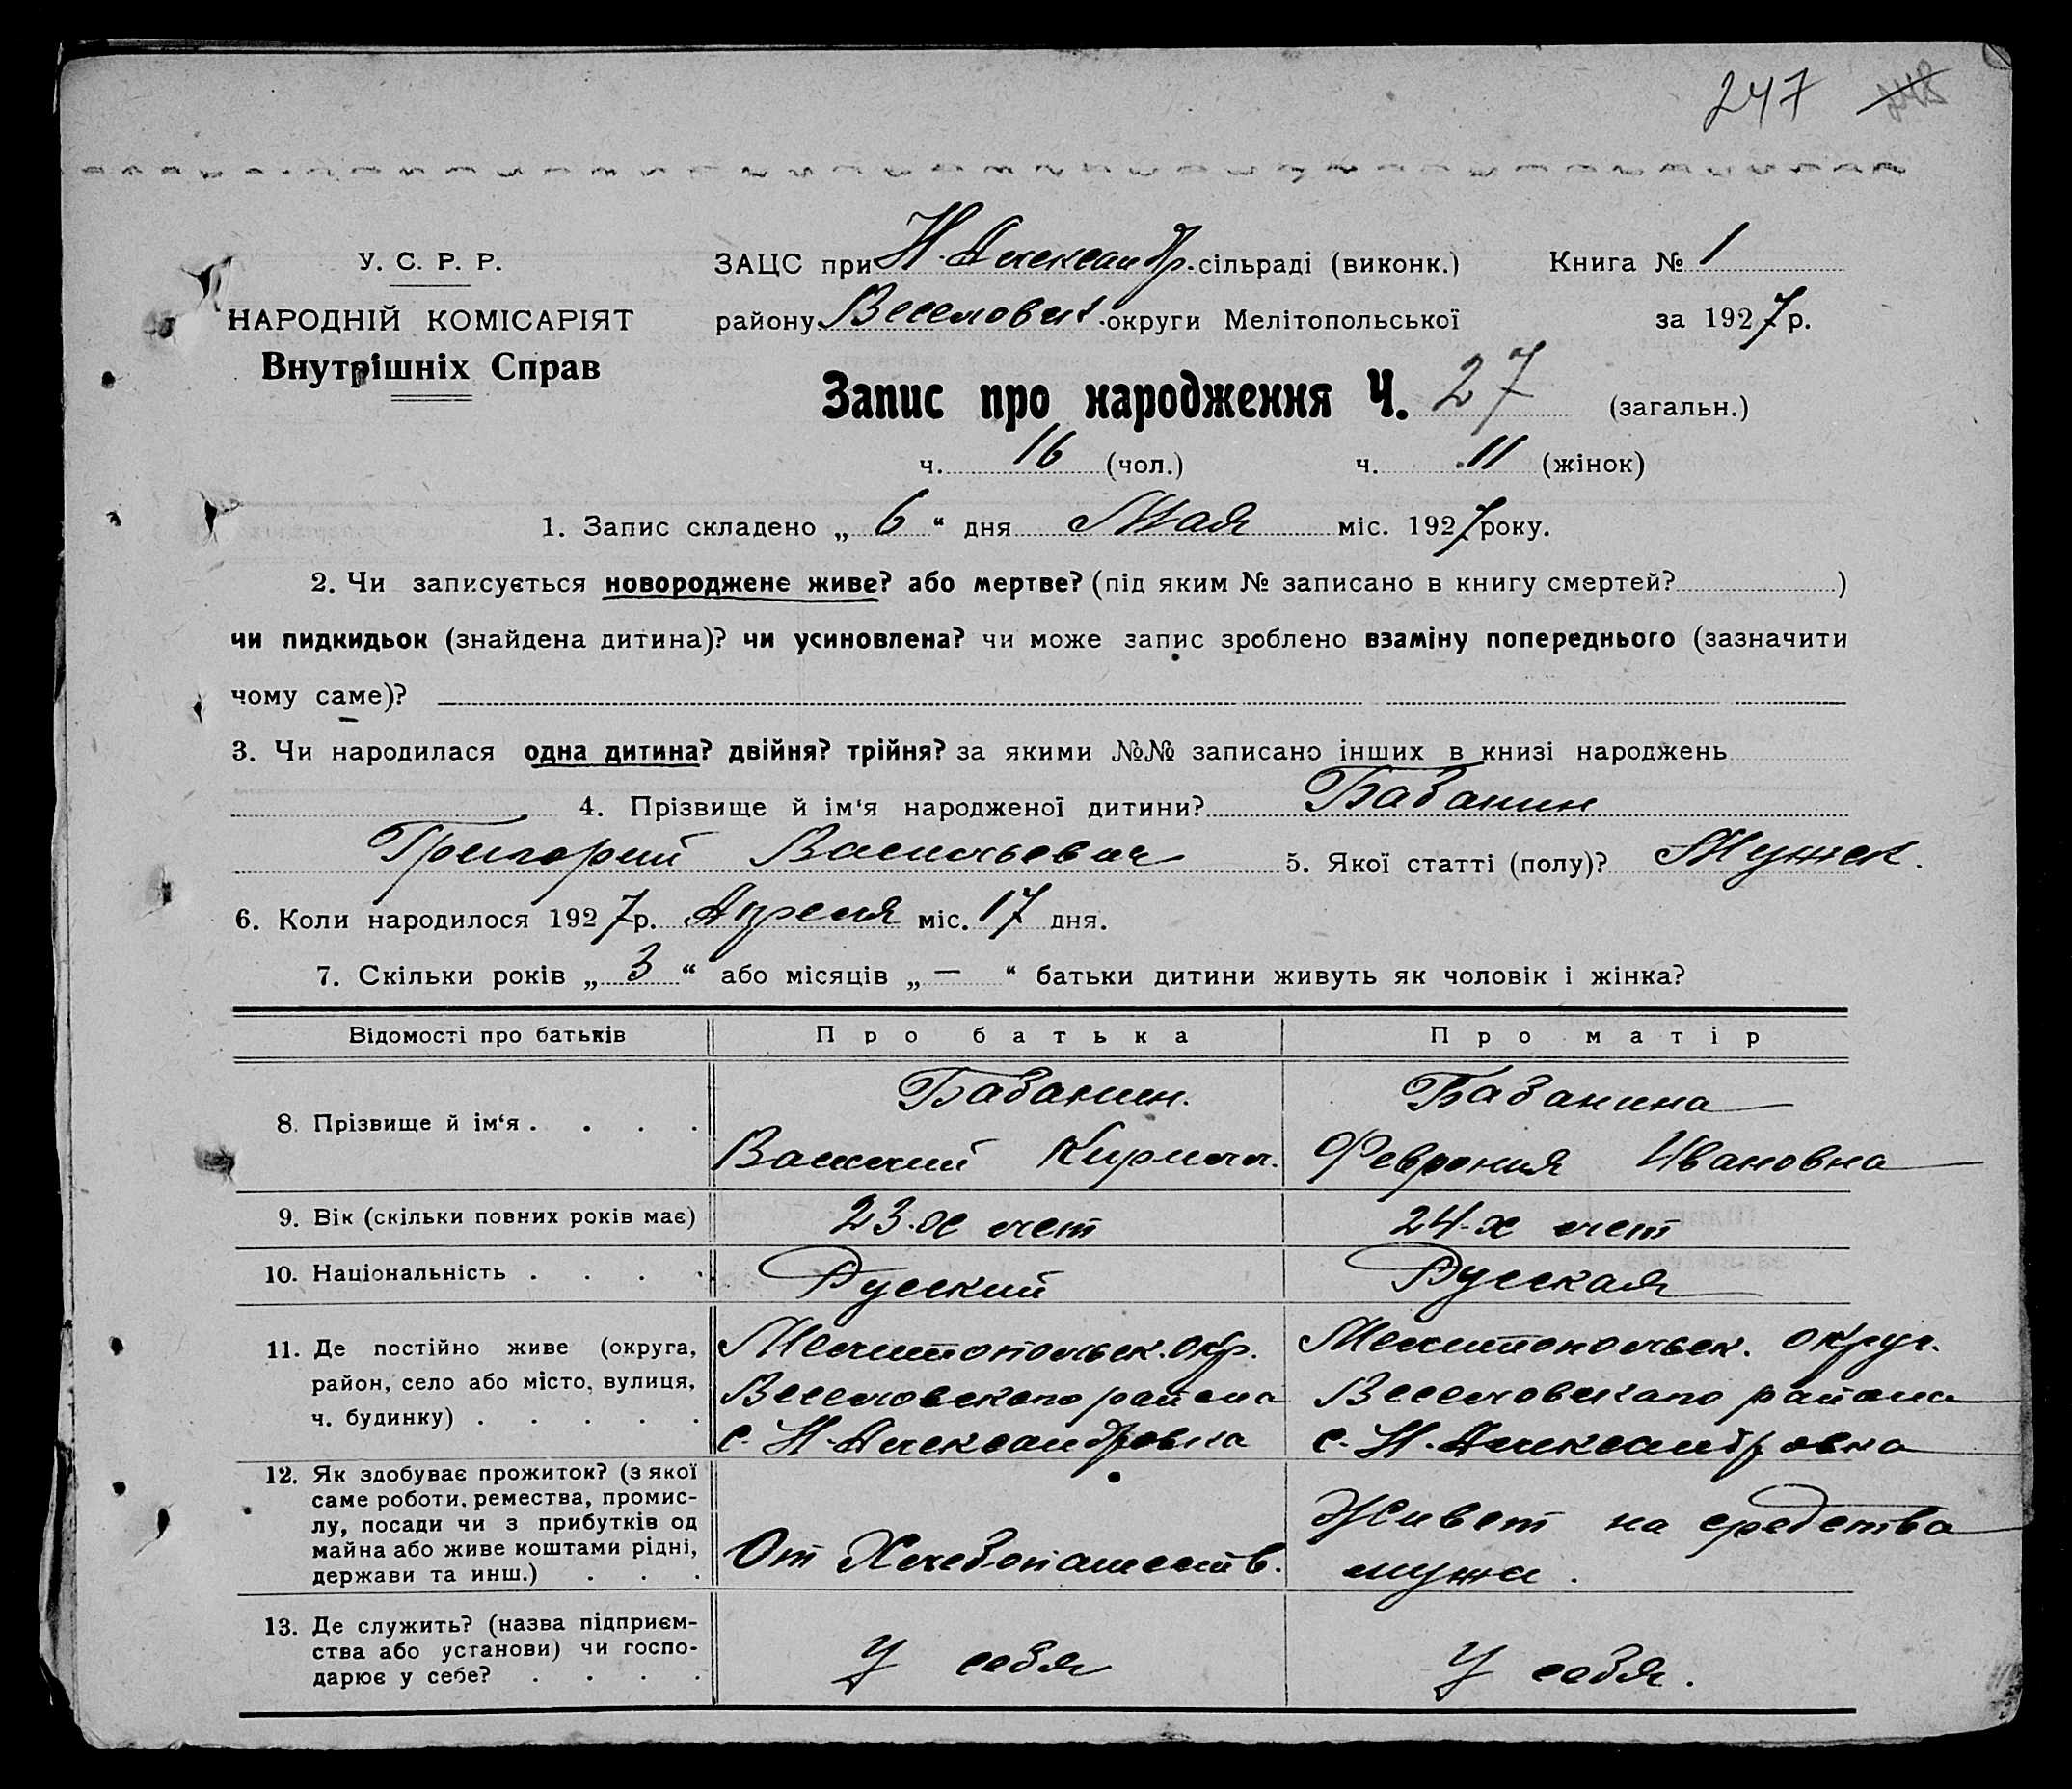 247
У. С. Р. Р.
НАРОДНІЙ КОМІСАРІЯТ
Внутрішніх Справ
ЗАЦС при Н-Александр. сільраді (виконк.) Книга № 1
району Веселовск. округи Мелітопольської за 1927 р.
Запис про народження Ч. 27 (загальн.)
ч. 16 (чол.) ч. 11 (жінок)
1. Запис складено „ 6 “ дня Мая міс. 1927 року.
2. Чи записується новороджене живе? або мертве? (під яким № записано в книгу смертей? )
чи пидкидьок (знайдена дитина)? чи усиновлена? чи може запис зроблено взаміну попереднього (зазначити
чому саме)?
3. Чи народилася одна дитина? двійня? трійня? за якими №№ записано інших в книзі народжень
4. Прізвище й ім‘я народженої дитини? Бабанин
Григорий Васильевич 5. Якої статті (полу)? Мужск.
6. Коли народилося 1927 р. Апреля міс. 17 дня.
7. Скільки років „ 3 “ або місяців „ — “ батьки дитини живуть як чоловік і жінка?
Відомості про батьків Про батька Про матір
8. Прізвище й ім‘я . . . . Бабанин. Бабанина
Василий Кирилл. Феврония Ивановна
9. Вік (скільки повних років має) 23-х лет 24-х лет
10. Національність . . . . Русский Русская
11. Де постійно живе (округа, Мелитопольск. окр. Мелитопольск. округ.
район, село або місто, вулиця, Веселовского района Веселовского района
ч. будинку) . . . . . с. Н-Александровка с. Н-Александровка
12. Як здобуває прожиток? (з якої
саме роботи, ремества, промис-
лу, посади чи з прибутків од Живет на средства
майна або живе коштами рідні, От Хлебопашеств. мужа.
держави та инш.) . . .
13. Де служить? (назва підприєм-
ства або установи) чи госпо- У себя У себя.
дарює у себе? . . . .